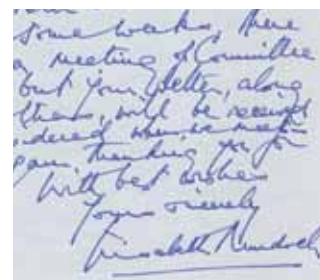 some weeks, there
a meeting of Committee
but your letter, along
thers, will be received
dered when we meet
gain, thanking you for
With best wishes
Yours sincerely
Elisabeth Murdoch